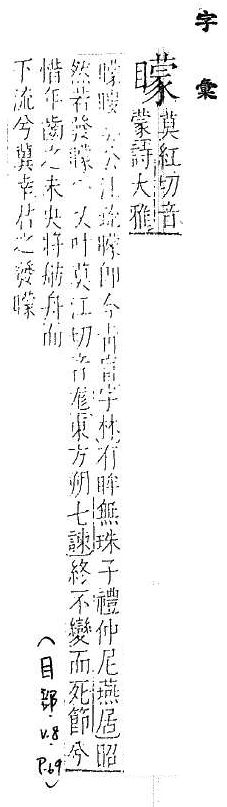 字彙
矇 莫紅切音
蒙詩大雅
矇瞍奏公註矇矇即今青盲字林有眸無珠子禮仲尼燕居昭
然若發矇 叶莫江切音厖東方朔七諫終不變而死節兮
惜年齒之未央將舫舟而
下流兮冀幸佔之發矇
(目部.V.8 P.69)